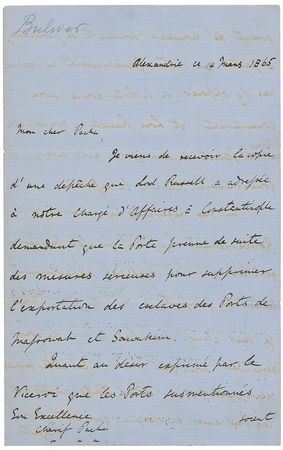 Bulwer
Alexandrie ce 14 Mars 1865
Mon cher Pacha
Je viens de recevoir la copie
d'une dépêche que Lord Russell a adressée
à notre Chargé d'Affaires à Constantinople
demandant que la Porte prenne de suite
des mesures sérieuses pour supprimer
l'exportation des esclaves des Ports de
Massowah et Sawakin.
Quant au désir exprimé par le
Viceroi que les Ports susmentionnés
Son Excellence
soient
Cherif Pacha